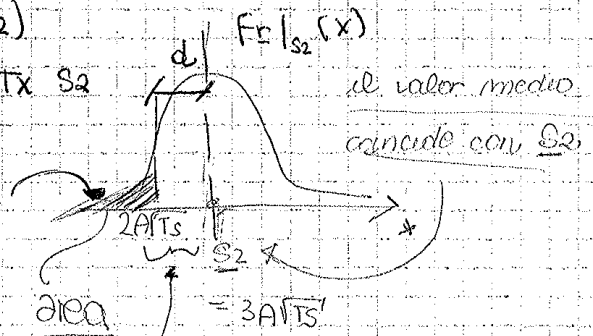 2)
Fr|S2 (x)
d
Tx S2
el valor medio
coincide con S2
2A√Ts
S2
x
area
= 3A√Ts